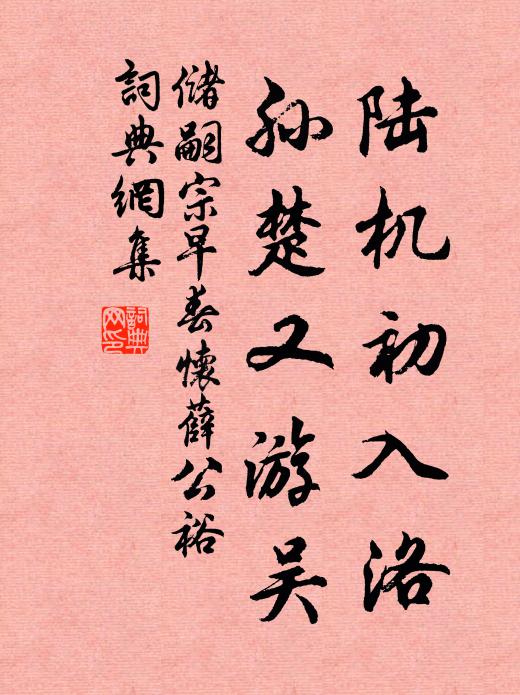 陆机初入洛
孙楚又游吴
储嗣宗早春怀薛公裕
词典网集
詞典
网印